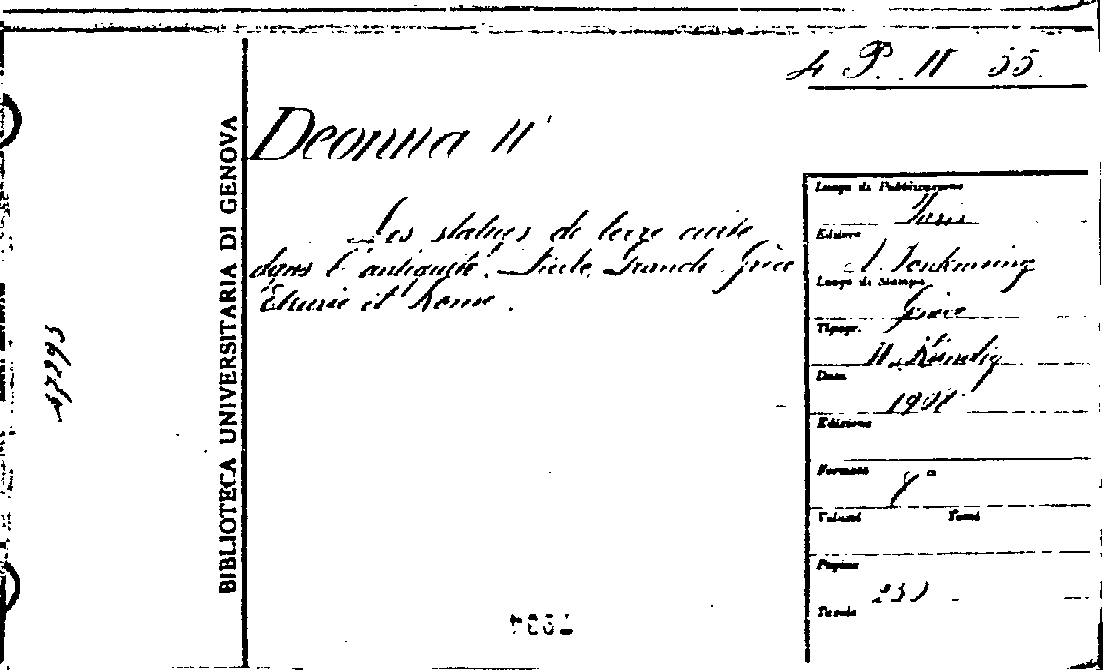 4 P. II 55.
BIBLIOTECA UNIVERSITARIA DI GENOVA
Deonna W
Les statues de terre cuite
dans l'antiquité. Sicile, Grande Grèce
Etrurie et Rome.
Luogo di Pubblicazione
Paris
Editore
Luogo di Stampa
Tipogr.
W. Kündig
Data
Edizione
Formato
8°
Volumi Tomi
Pagine
Tavole